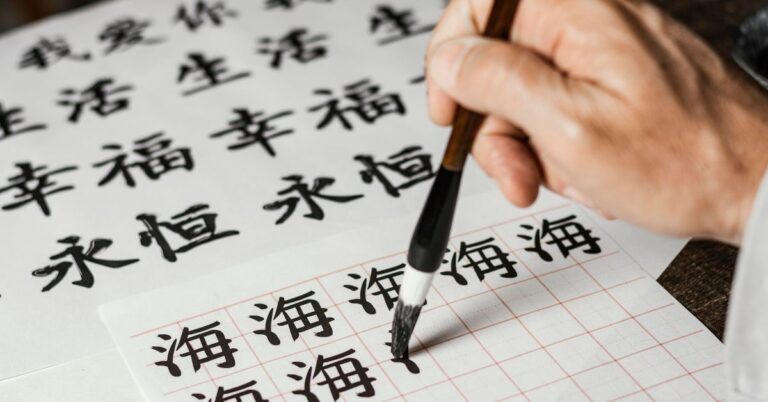 我爱你
生活 生活 生
幸福 幸福
永恒 永恒
海海海海海
海海